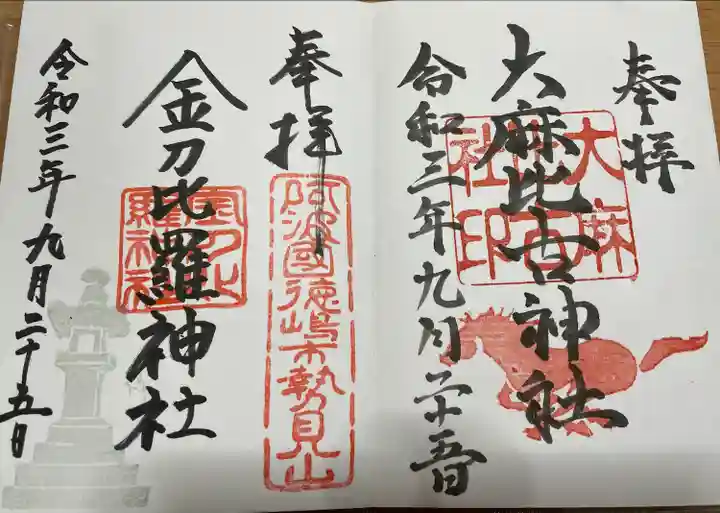 奉拝
大麻比古神社
大麻比古社印
令和三年九月二十五日
奉拝
阿波國徳嶋市勢見山
金刀比羅神社
金刀比羅神社
令和三年九月二十五日